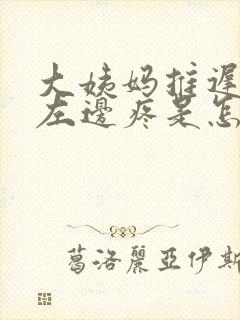 大姨妈推遲
左邊疼是怎
葛洛麗亞伊斯